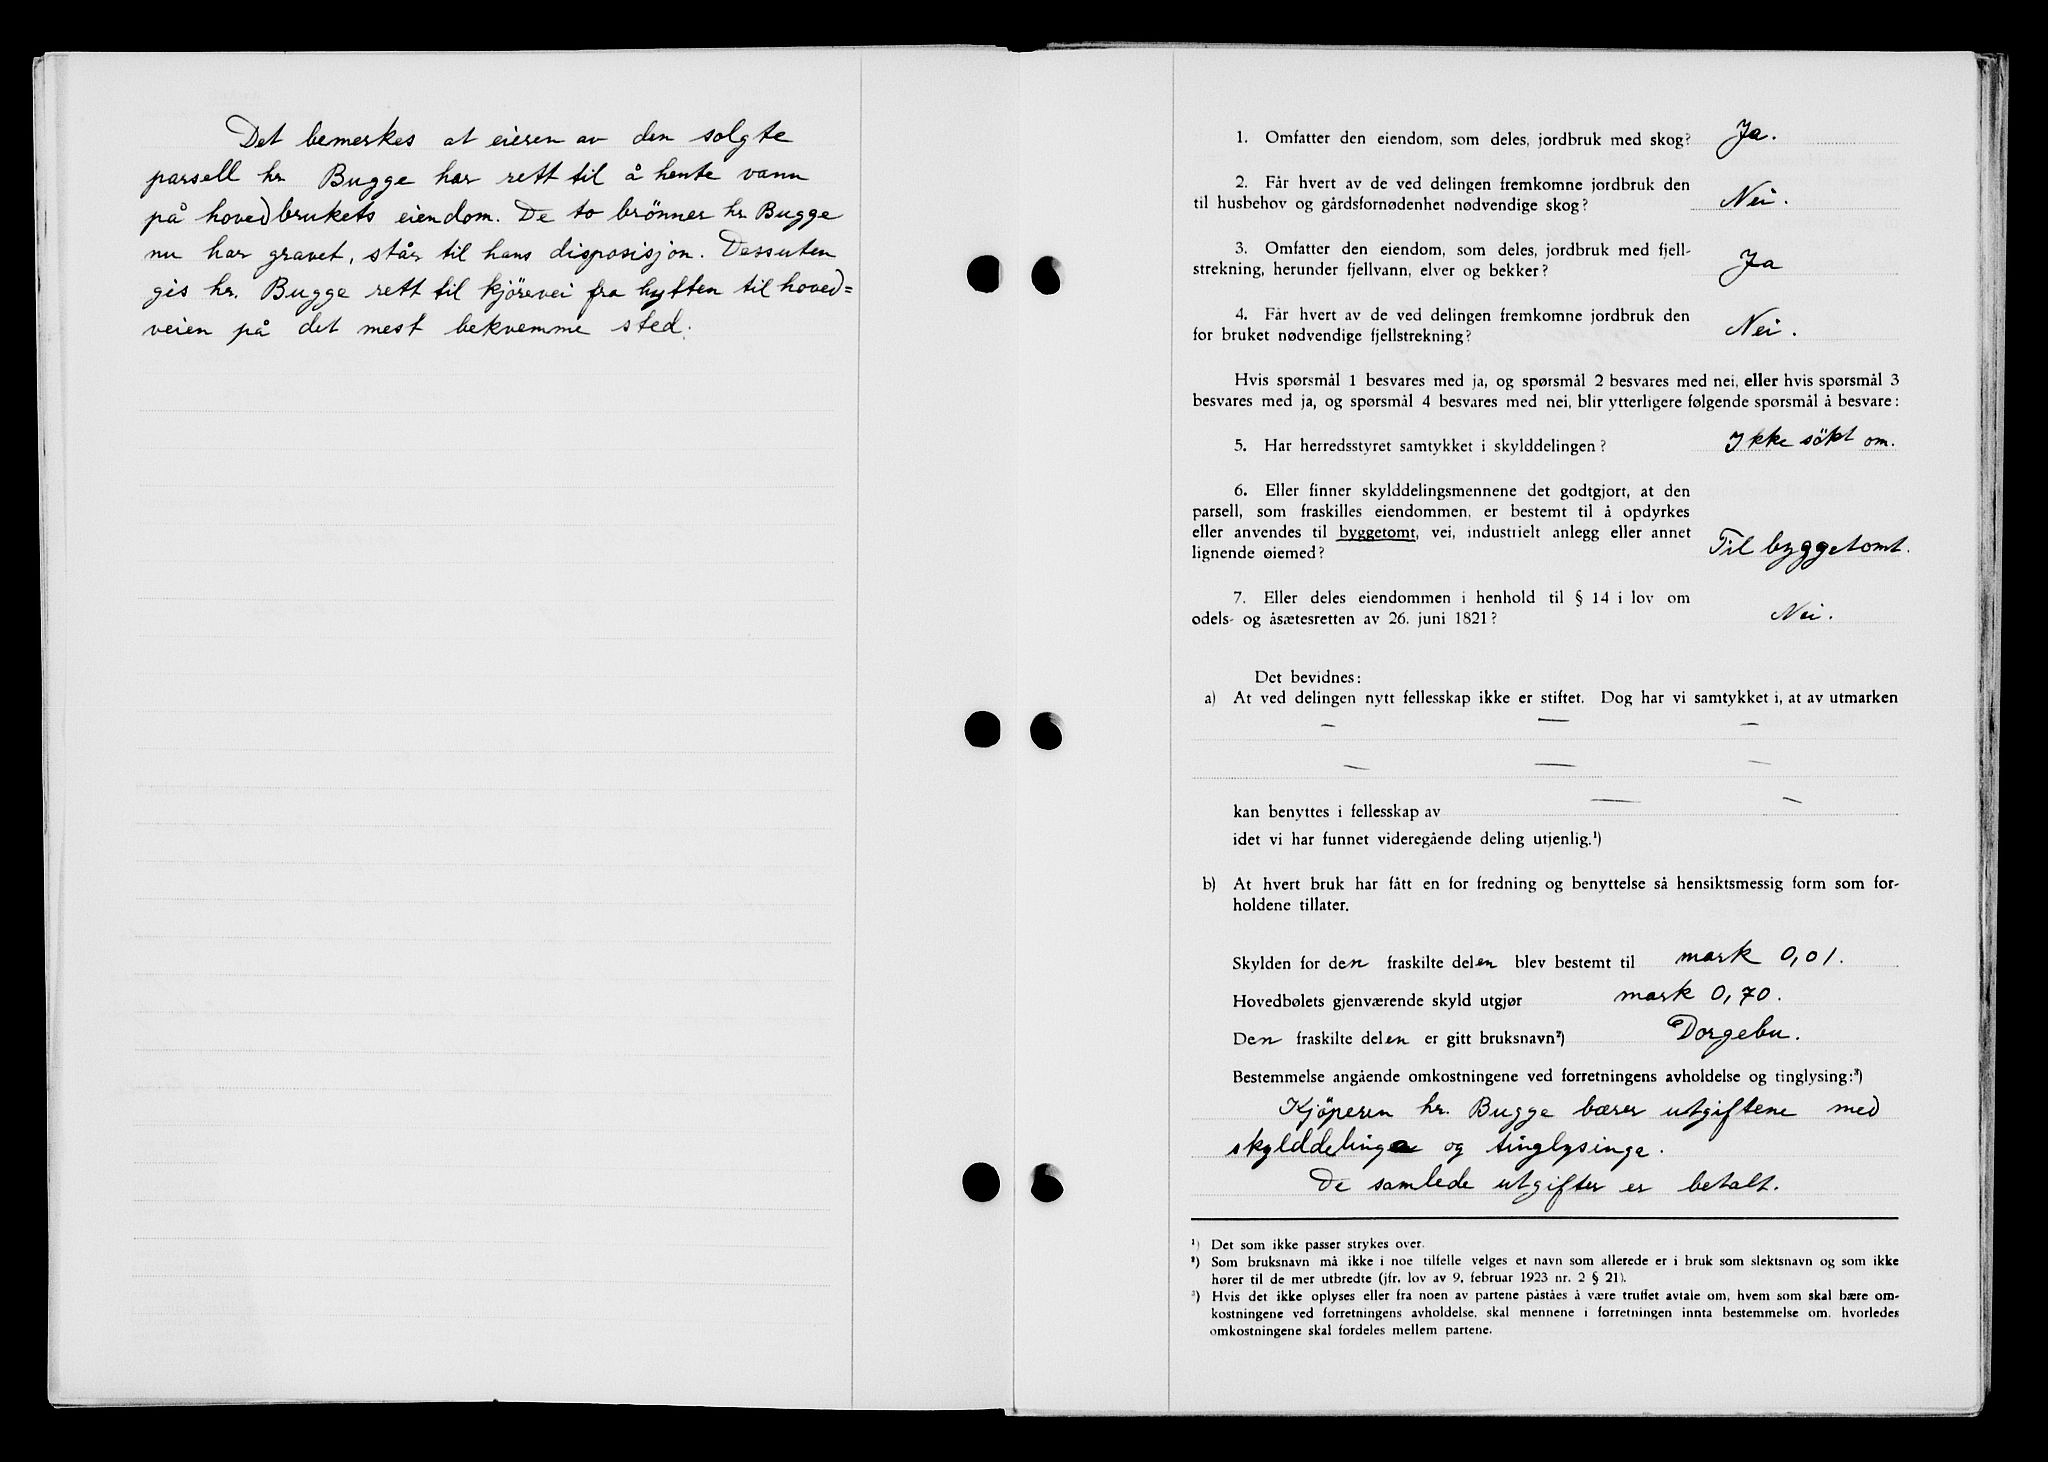 Det bemerkes at eieren av den solgte
parsell hr. Bugge har rett til å hente vann
på hovedbrukets eiendom. De to brönner hr. Bugge
nu har gravet, står til hans disposisjon. Dessuten
gis hr. Bugge rett til kjörevei fra hytten til hoved=
veien på det mest bekvemme sted.
1. Omfatter den eiendom, som deles, jordbruk med skog? Ja.
2. Får hvert av de ved delingen fremkomne jordbruk den
til husbehov og gårdsfornødenhet nødvendige skog? Nei.
3. Omfatter den eiendom, som deles, jordbruk med fjell-
strekning, herunder fjellvann, elver og bekker? Ja
4. Får hvert av de ved delingen fremkomne jordbruk den
for bruket nødvendige fjellstrekning? Nei.
Hvis spørsmål 1 besvares med ja, og spørsmål 2 besvares med nei, eller hvis spørsmål 3
besvares med ja, og spørsmål 4 besvares med nei, blir ytterligere følgende spørsmål å besvare:
5. Har herredsstyret samtykket i skylddelingen? Ikke sökt om.
6. Eller finner skylddelingsmennene det godtgjort, at den
parsell, som fraskilles eiendommen, er bestemt til å opdyrkes
eller anvendes til byggetomt, vei, industrielt anlegg eller annet
lignende øiemed? Til byggetomt.
7. Eller deles eiendommen i henhold til § 14 i lov om
odels- og åsætesretten av 26. juni 1821? Nei.
Det bevidnes:
a) At ved delingen nytt fellesskap ikke er stiftet. Dog har vi samtykket i, at av utmarken
— — —
— — —
kan benyttes i fellesskap av — —
idet vi har funnet videregående deling utjenlig.¹)
b) At hvert bruk har fått en for fredning og benyttelse så hensiktsmessig form som for-
holdene tillater.
Skylden for den fraskilte delen blev bestemt til mark 0,01.
Hovedbølets gjenværende skyld utgjør mark 0,70.
Den fraskilte delen er gitt bruksnavn²) Dorgebu.
Bestemmelse angående omkostningene ved forretningens avholdelse og tinglysing:³)
Kjöperen hr. Bugge bærer utgiftene med
skylddelinga og tinglysinga.
De samlede utgifter er betalt.
¹) Det som ikke passer strykes over.
²) Som bruksnavn må ikke i noe tilfelle velges et navn som allerede er i bruk som slektsnavn og som ikke
hører til de mer utbredte (jfr. lov av 9. februar 1923 nr. 2 § 21).
³) Hvis det ikke oplyses eller fra noen av partene påståes å være truffet avtale om, hvem som skal bære om-
kostningene ved forretningens avholdelse, skal mennene i forretningen innta bestemmelse om, hvorledes
omkostningene skal fordeles mellem partene.